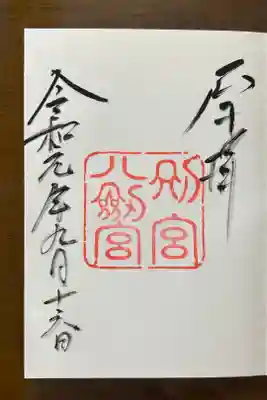 別宮
八劔宮
令和元年九月十六日